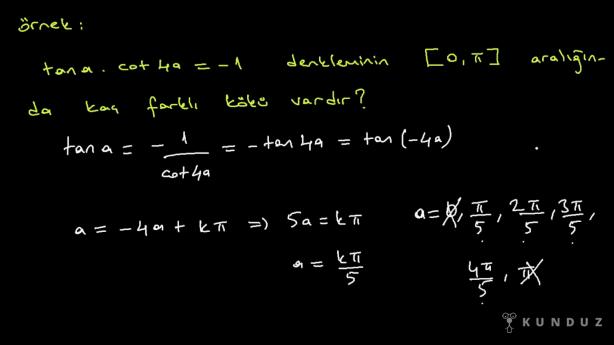 örnek:
tan a . cot 4a = -1 denkleminin [0, π] aralığın-
da kaç farklı kökü vardır?
tan a = - 1/cot4a = - tan 4a = tan (-4a)
a = -4a + kπ ⇒ 5a = kπ
a = 0, π/5, 2π/5, 3π/5,
a = kπ/5
4π/5, π
KUNDUZ